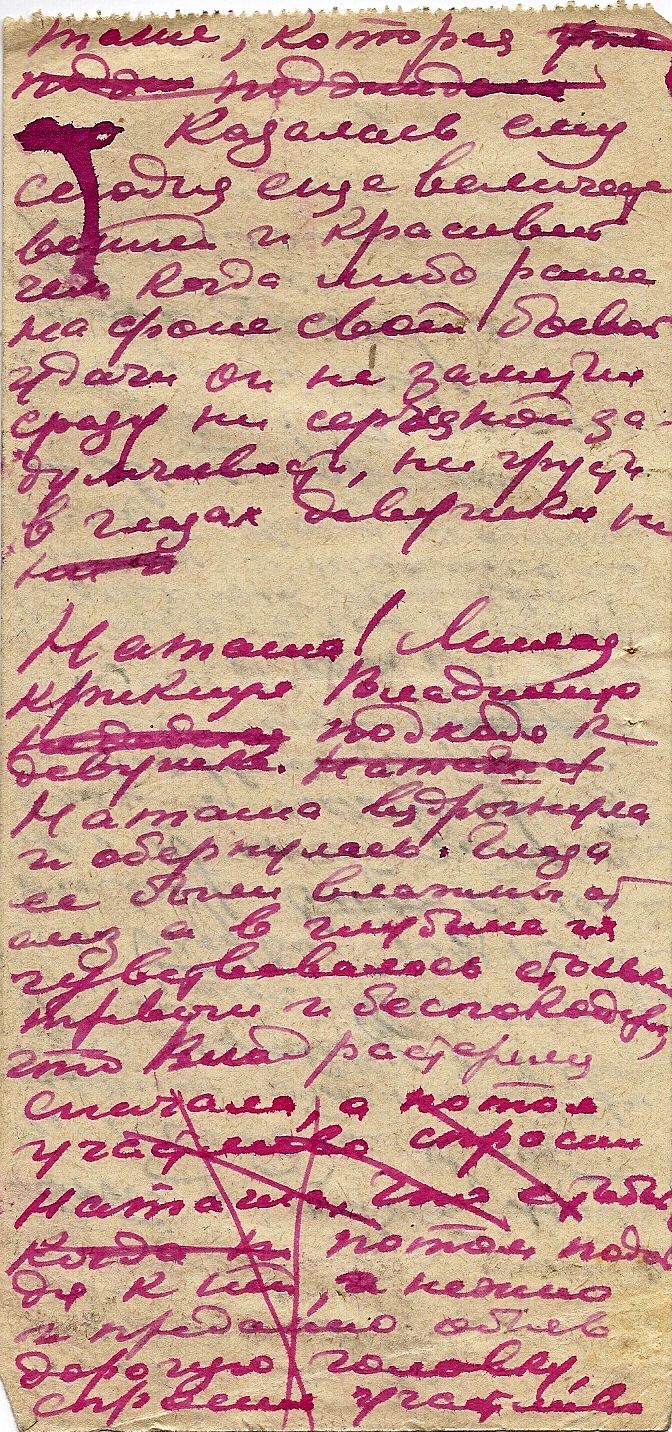 таше, которая
казалась ему
сегодня еще величест
венней и красивей
чем когда либо ранее
на фоне своей боевой
удачи он не заметил
сразу ни серьезной за
думчивости, ни грусти
в глазах девушки
Наташа! Милая
крикнул Владимир
подходя к
девушке.
Наташа вздрогнула
и обернулась. Глаза
ее были влажны от
слез а в глубине их
чувствовалось столько
тревоги и беспокойства
что Влад растерялся
сначала, а потом
участливо спросил
Наташа, что с тобой
когда он потом подой
дя к ней, а нежно
и преданно обняв
дорогую головку,
спросил участливо